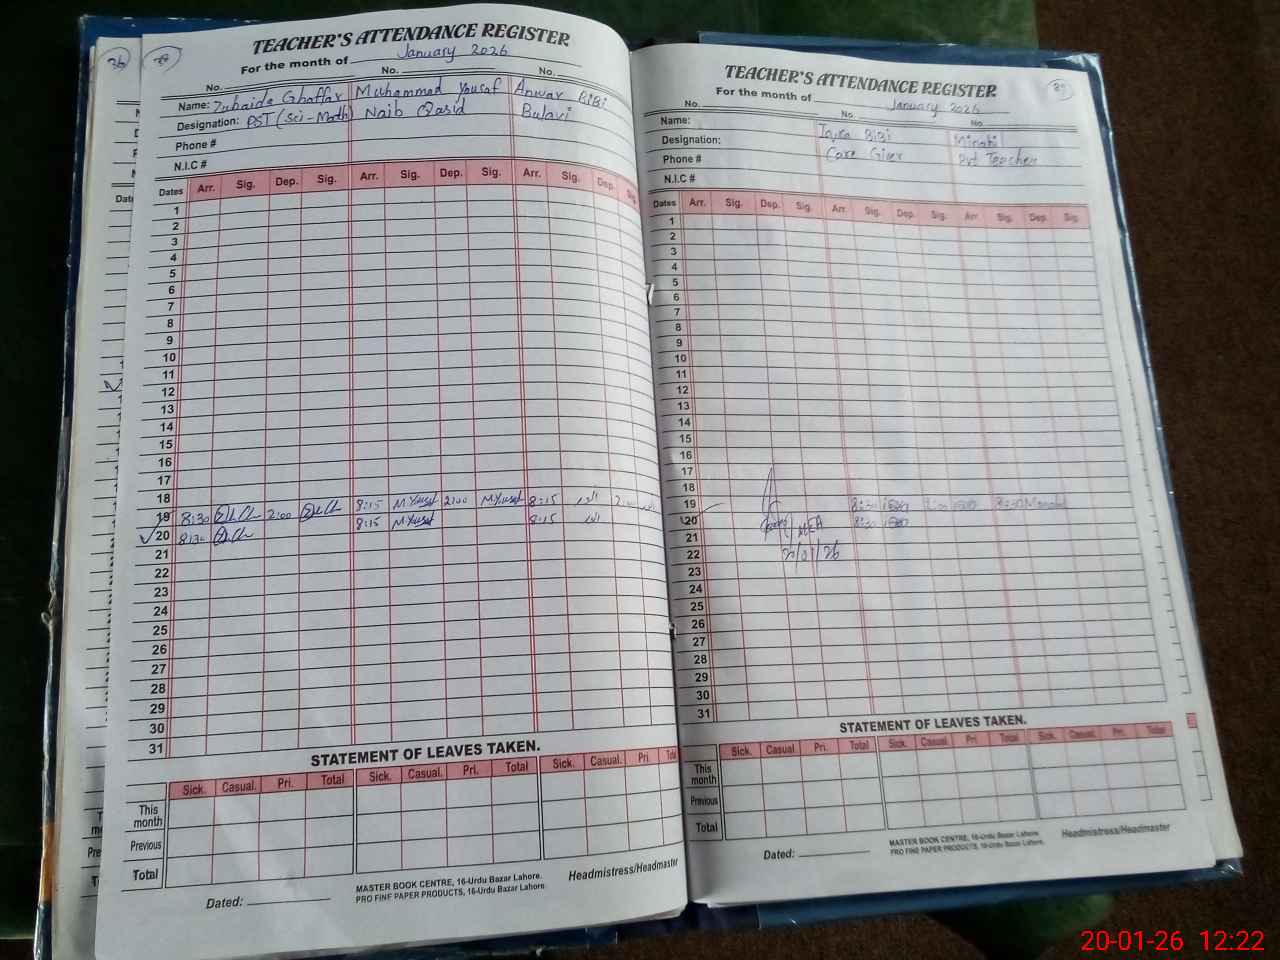 36
TEACHER'S ATTENDANCE REGISTER
For the month of January 2026
No. No. No.
Name: Zubaida Ghaffar Muhammad Yousaf Anwar BiBi
Designation: PST (Sci-Math) Naib Qasid Bulavi
Phone #
N.I.C #
Dates Arr. Sig. Dep. Sig. Arr. Sig. Dep. Sig. Arr. Sig. Dep. Sig.
1
2
3
4
5
6
7
8
9
10
11
12
13
14
15
16
17
18
19 8:30 2:00 8:15 M Yousaf 2:00 M Yousaf 8:15
20 8:30 8:15 M Yousaf 8:15
21
22
23
24
25
26
27
28
29
30
31
STATEMENT OF LEAVES TAKEN.
Sick. Casual. Pri. Total Sick. Casual. Pri. Total Sick. Casual. Pri. Total
This month
Previous
Total
Dated:
MASTER BOOK CENTRE, 16-Urdu Bazar Lahore.
PRO FINE PAPER PRODUCTS, 16-Urdu Bazar Lahore.
Headmistress/Headmaster
TEACHER'S ATTENDANCE REGISTER
For the month of January 2026
No. No. No.
Name: Iqra BiBi
Designation: Care Giver Pvt Teacher
Phone #
N.I.C #
Dates Arr. Sig. Dep. Sig. Arr. Sig. Dep. Sig. Arr Sig. Dep. Sig.
1
2
3
4
5
6
7
8
9
10
11
12
13
14
15
16
17
18
19 8:30 8:30
20 MEA 8:30
21
22
23
24
25
26
27
28
29
30
31
STATEMENT OF LEAVES TAKEN.
Sick. Casual Pri. Total Sick. Casual. Pri. Total Sick. Casual. Pri. Total
This month
Previous
Total
Dated:
MASTER BOOK CENTRE, 16-Urdu Bazar Lahore.
PRO FINE PAPER PRODUCTS, 16-Urdu Bazar Lahore.
Headmistress/Headmaster
20-01-26 12:22